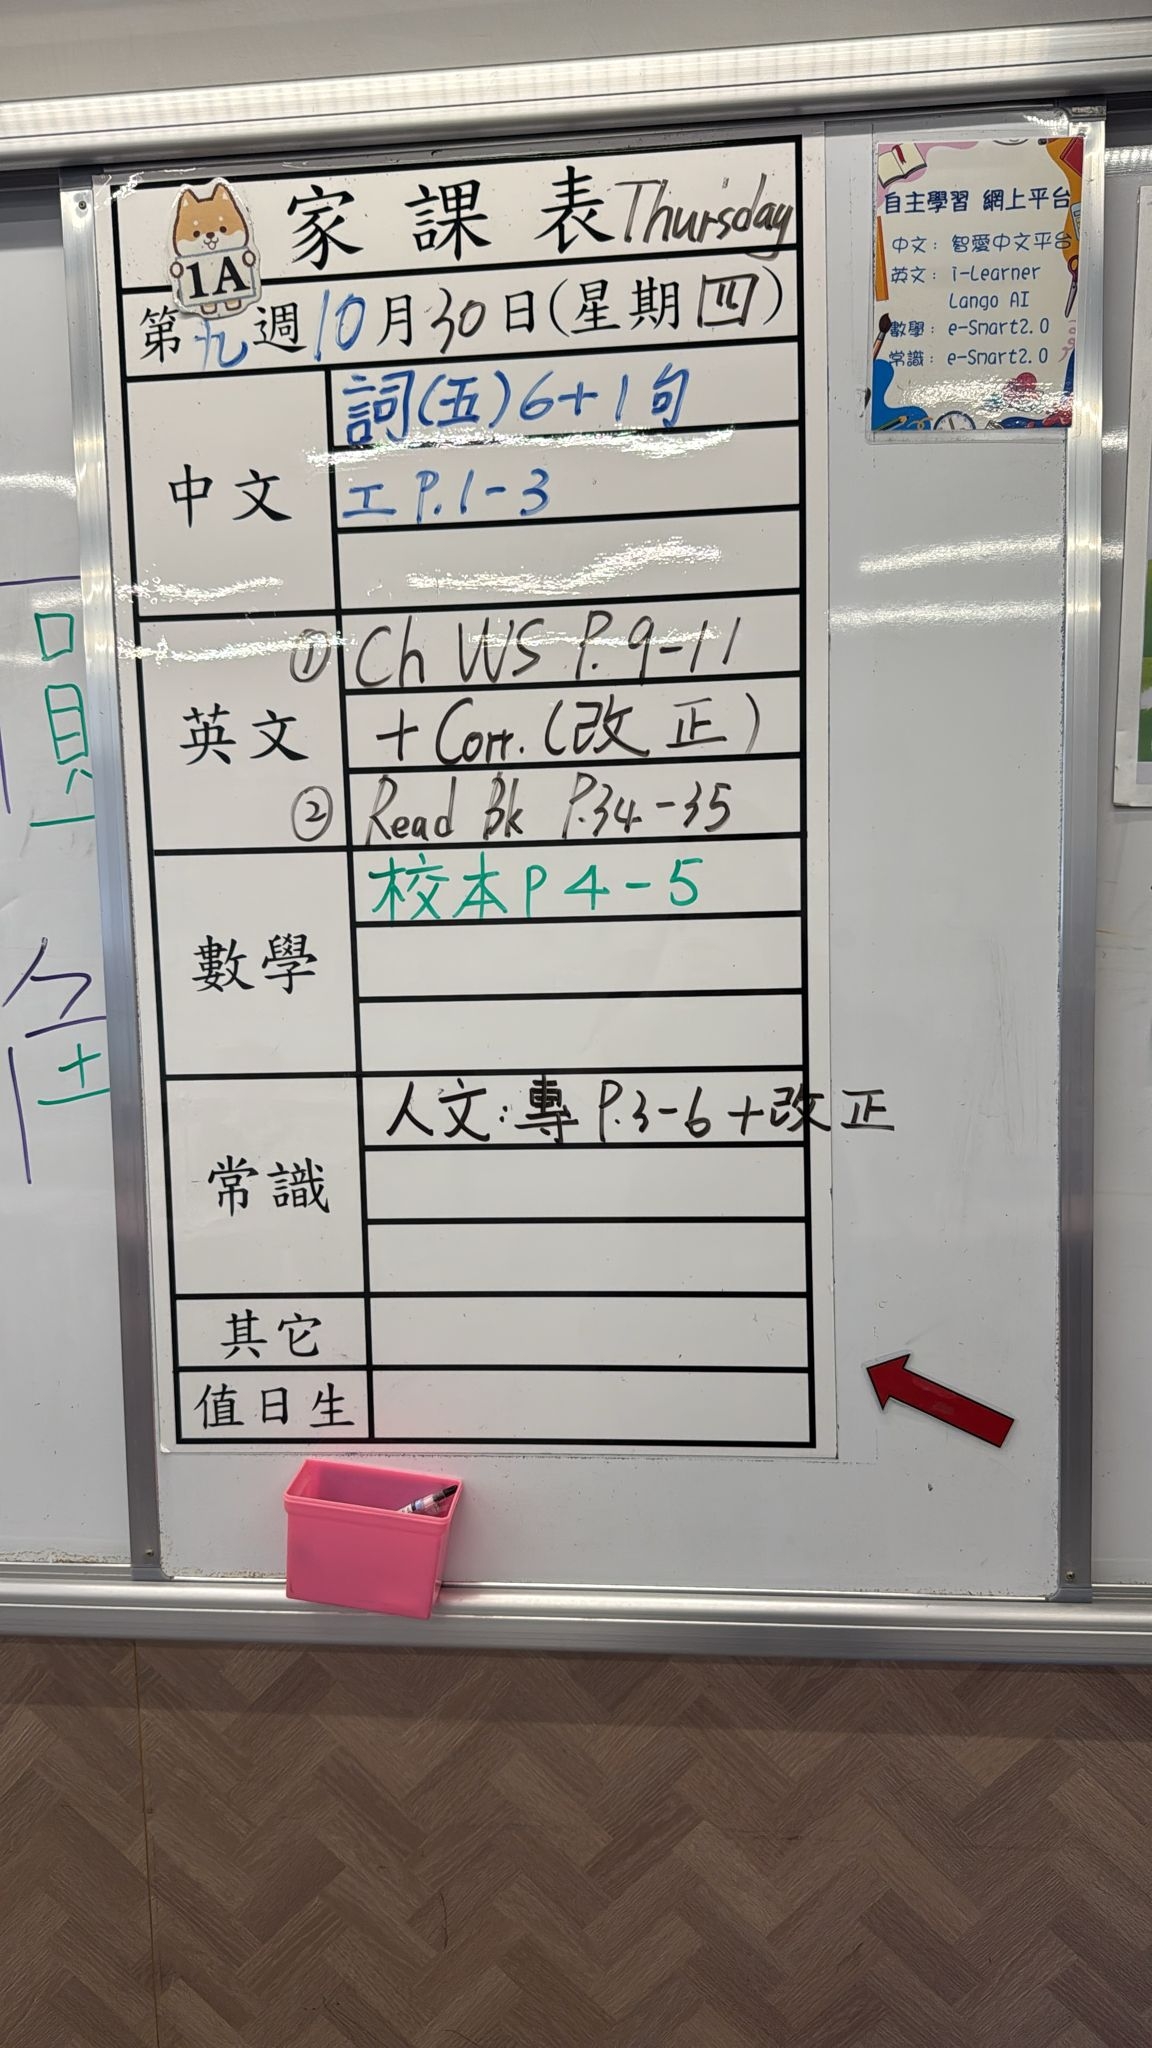 家課表 Thursday
1A
第九週10月30日(星期四)
中文
詞(五)6+1句
工 P.1-3
英文
① Ch WS P.9-11
+ Corr.(改正)
② Read Bk P.34-35
數學
校本P 4-5
常識
人文:專 P.3-6+改正
其它
值日生
自主學習 網上平台
中文: 智愛中文平台
英文: i-Learner
Lango AI
數學: e-Smart2.0
常識: e-Smart2.0